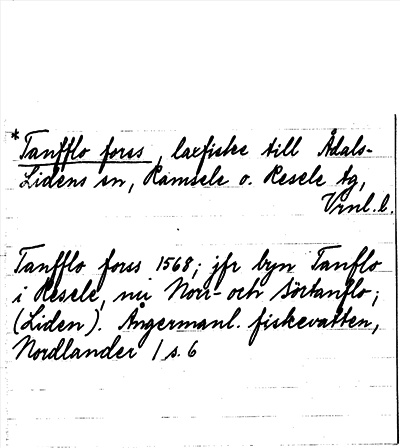 * Tanfflo forss, laxfiske till Ådals-
Lidens sn, Ramsele o. Resele tg,
Vrnl. l.
Tanfflo forss 1568; jfr byn Tanflo
i Resele, nu Norr- och Sörtanflo;
(Liden). Ångermanl. fiskevatten,
Nordlander 1 s. 6